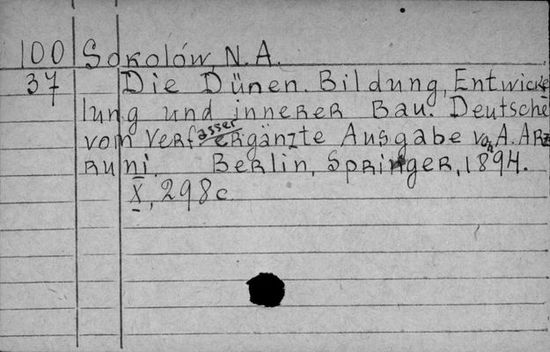 100 Sokolów, N.A.
37 Die Dünen. Bildung, Entwicke
lung und innerer Bau. Deutsche
vom Verfasser ergänzte Ausgabe von A. Arz
runi. Berlin, Springer, 1894.
X, 298 c